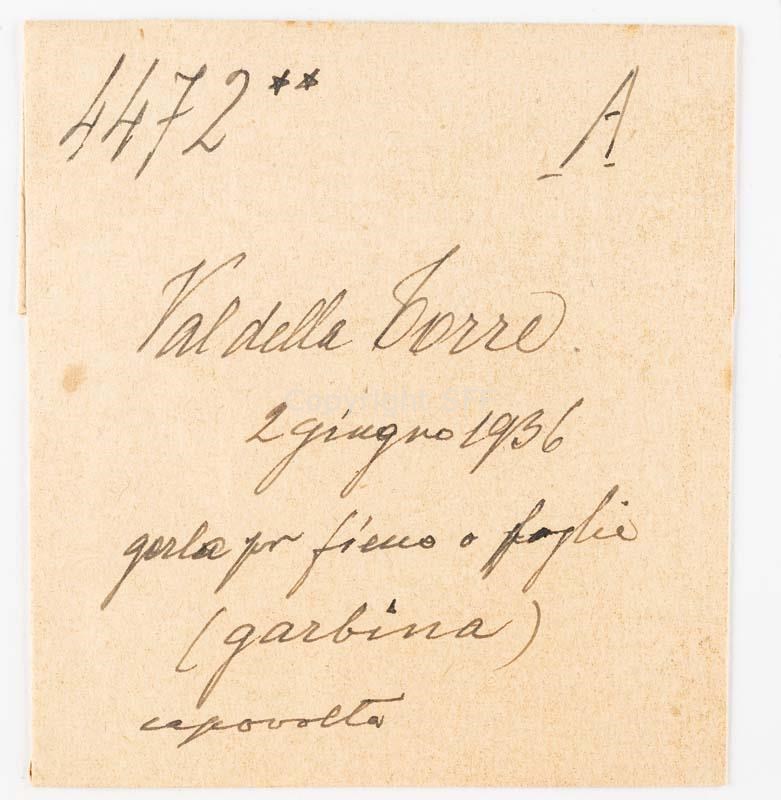 4472** A
Val della Torre.
2 giugno 1936
gerla pr fieno o foglie
(garbina)
capovolta